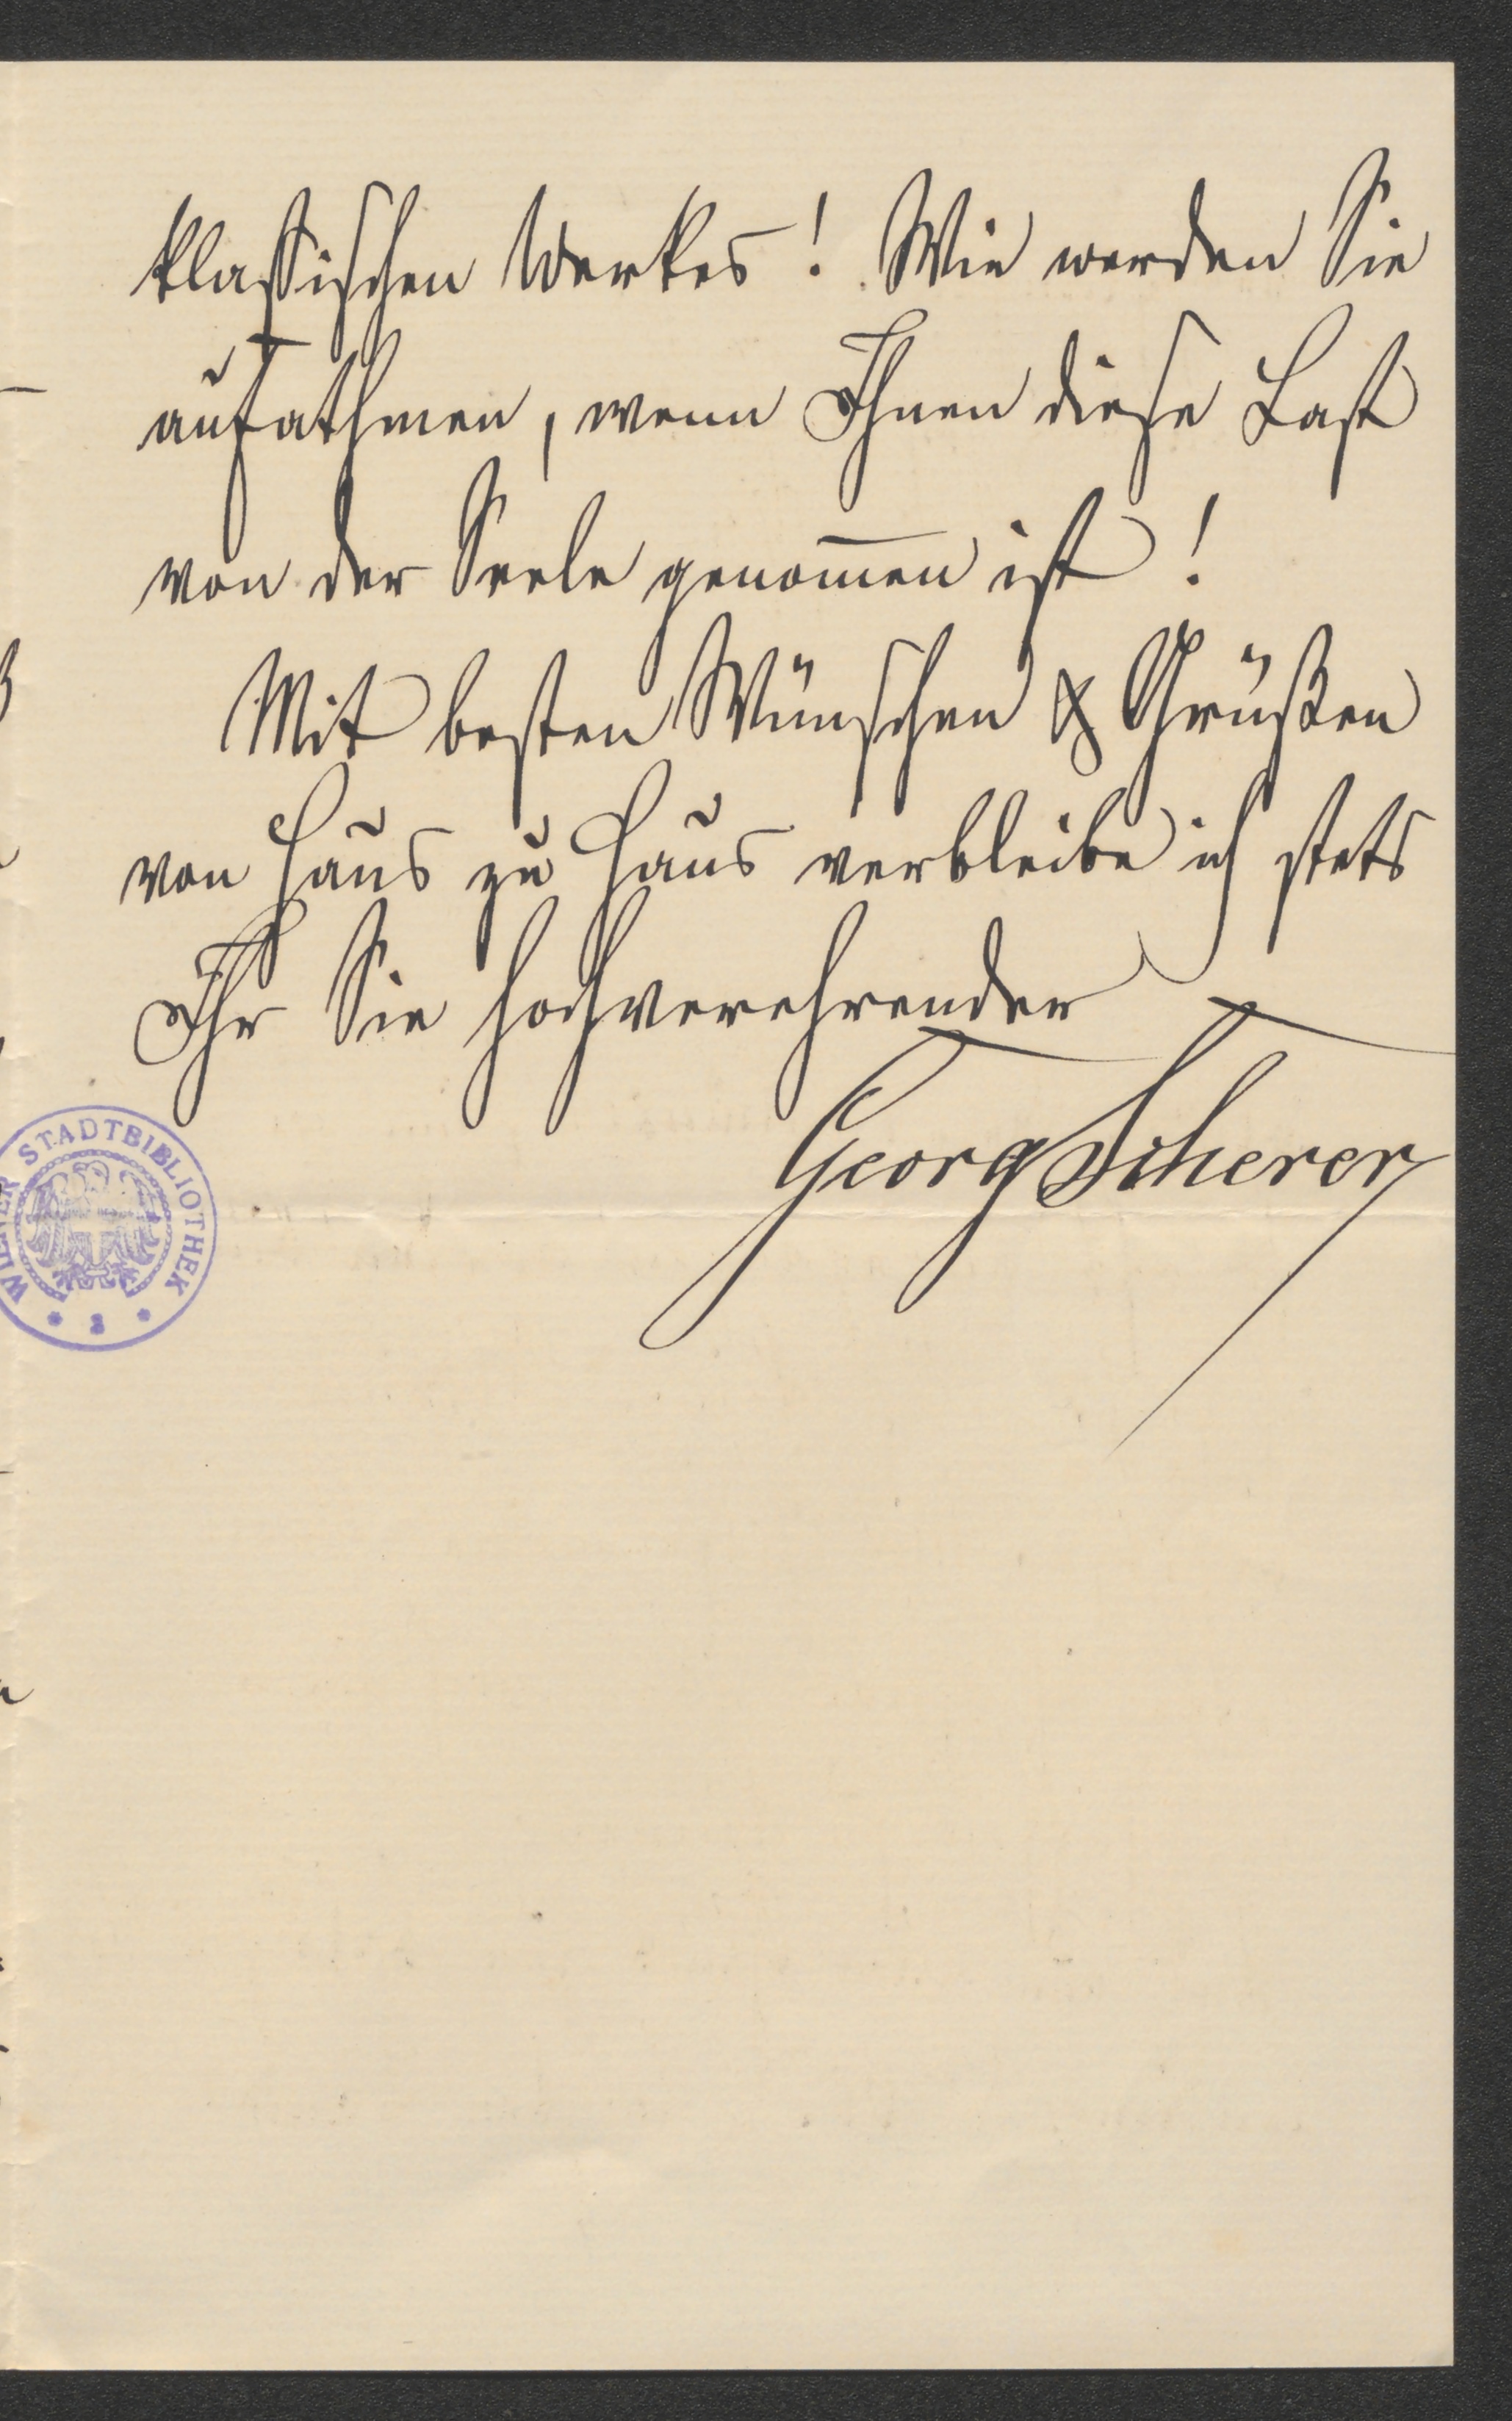 klassischen Werkes! Wie werden Sie
aufathmen, wenn Ihnen diese Last
von der Seele genom̄en ist!
Mit besten Wünschen & Grüßen
von Haus zu Haus verbleibe ich stets
Ihr Sie hochverehrender
Georg Scherer
WIENER STADTBIBLIOTHEK